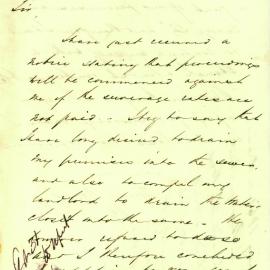 Sir
I have just received a
notice stating that proceedings
will be commenced against
me if the sewerage rates are
not paid. I beg to say that
I have long desired to drain
my premises into the sewer
and also to compel my
landlord to drain the Water
closet into the same. The
refused to do so
I therefore concluded